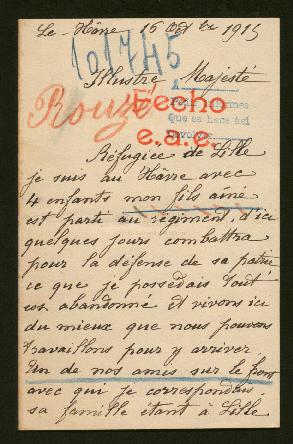 Le Hâvre 15 Oct bre 1915
101745
Illustre Majesté
A
Que se hace así
Rouzé
Fecho
e.a.e.
Réfugiée de Lille
je suis au Hâvre avec
4 enfants mon fils aîné
est parti au régiment, d'ici
quelques jours combattra
pour la défense de sa patrie
ce que je possédais tout
est abandonné et vivons ici
du mieux que nous pouvons
travaillons pour y arriver
Un de nos amis sur le front
avec qui je correspondais
sa famille étant à Lille